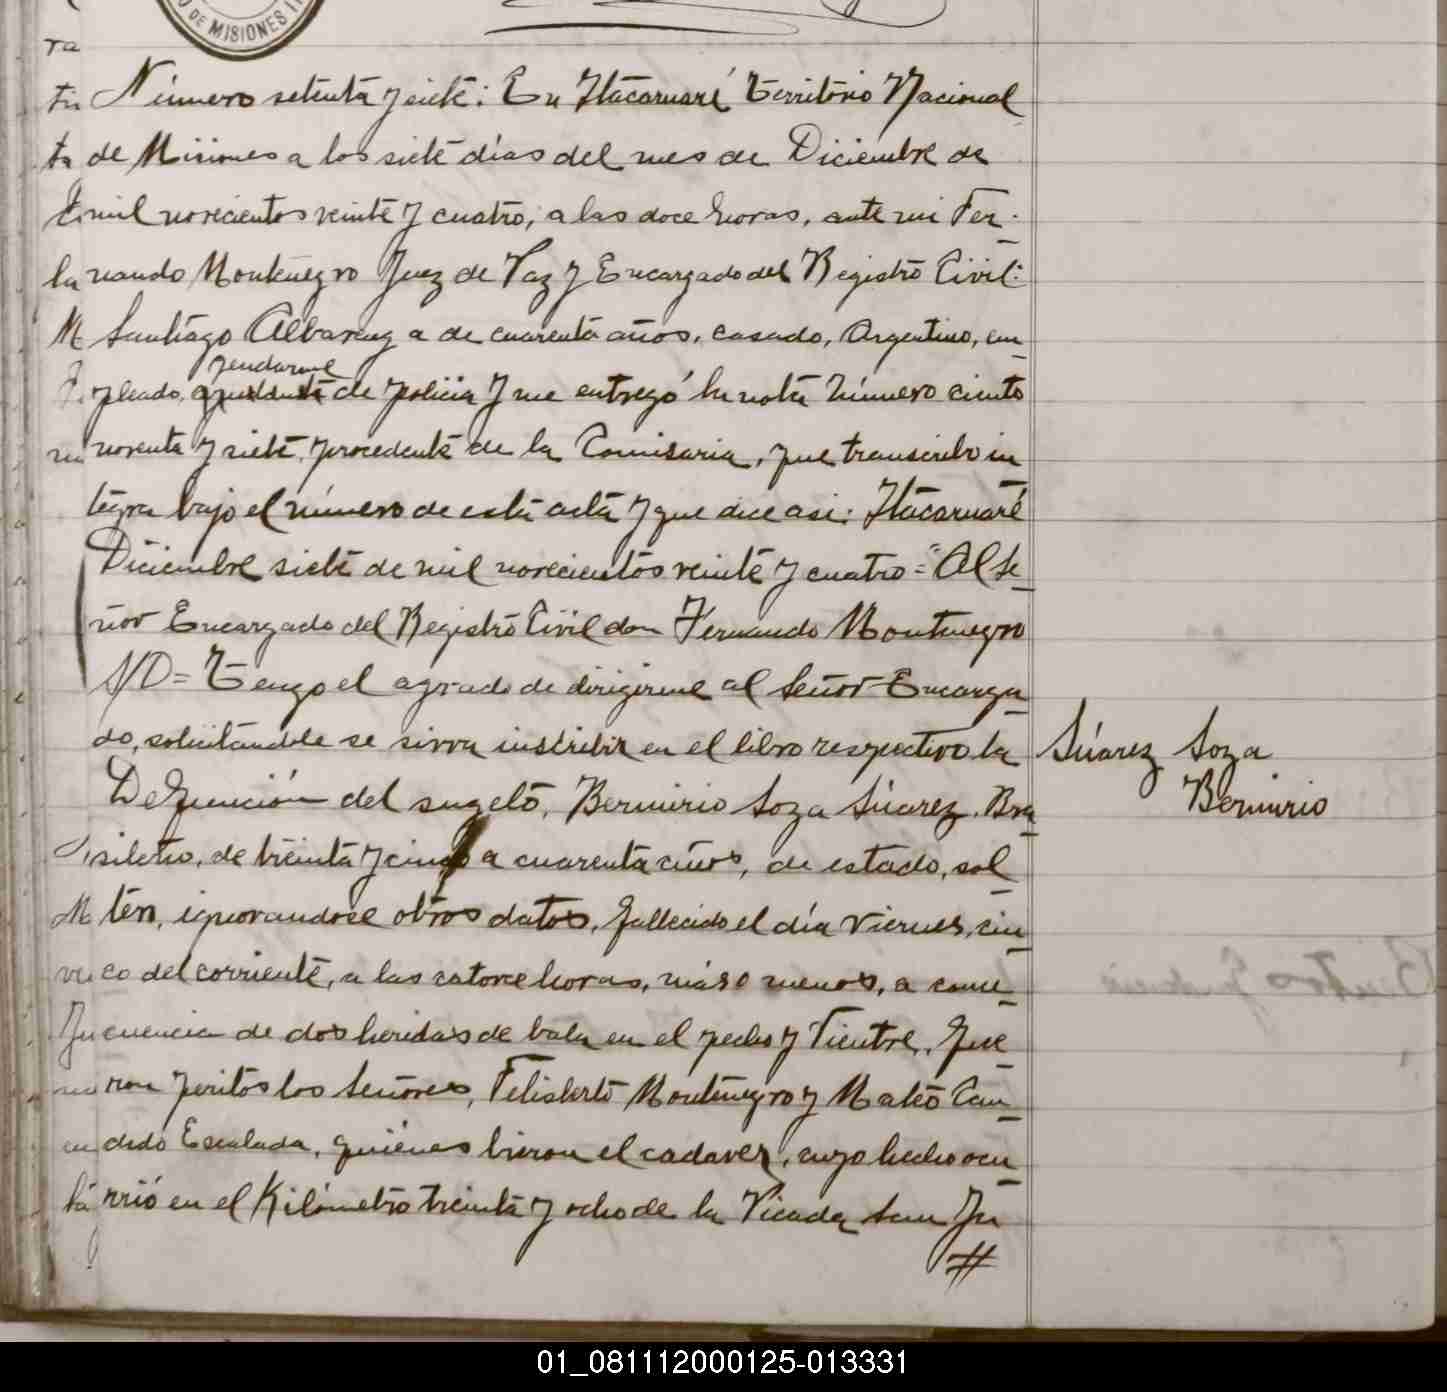 DE MISIONES
Número setenta y siete: En Itacaruaré Territorio Nacional
de Misiones a los siete días del mes de Diciembre de
mil novecientos veinte y cuatro, a las doce horas, ante mi Fer-
nando Montenegro Juez de Paz y Encargado del Registro Civil:
Santiago Albarenga de cuarenta años, casado, Argentino, em-
jendarme
pleado, de policia y me entregó la nota número ciento
noventa y siete, procedente de la Comisaria, que transcribo in
tegra bajo el número de esta acta y que dice asi: Itacaruaré
Diciembre siete de mil novecientos veinte y cuatro = "Al Se-
ñor Encargado del Registro Civil don Fernando Montenegro
S/D = Tengo el agrado de dirigirme al Señor Encarga-
do, solicitandole se sirva inscribir en el libro respectivo la
Defunción del sugeto, Bermirio Soza Súarez, Bra-
sileño, de treinta y cinco a cuarenta años, de estado, sol-
tero, ignorandose otros datos, fallecido el día viernes, cin-
co del corriente, a las catorce horas, más o menos, a conse-
cuencia de dos heridas de bala en el pecho y Vientre, fue-
ron peritos los Señores, Felisberto Montenegro y Mateo Can-
dido Escalada, quiénes bieron el cadaver, cuyo hecho ocu-
rrió en el Kilómetro treinta y ocho de la Picada San Ja
#
Súarez Soza
Bermirio
01_081112000125-013331